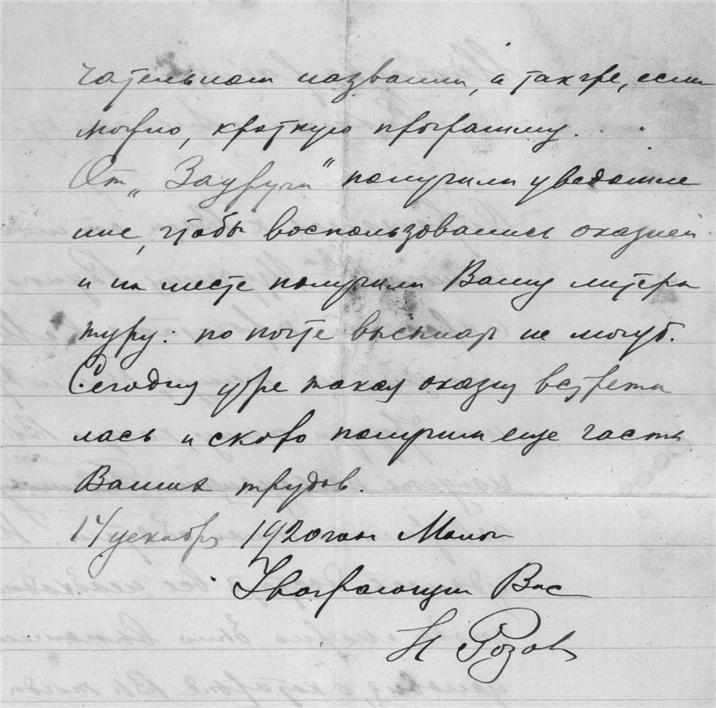 чательном названии, а также, если
можно, краткую программу...
От „Задруги" получили уведомле
ние, чтобы воспользовались оказией
и на месте получили Вашу литера
туру: по почте выслать не могут.
Сегодня уже такая оказия встрети
лась и скоро получим еще часть
Ваших трудов.
14 декабря 1920 года
Уважающий Вас
Н Розов